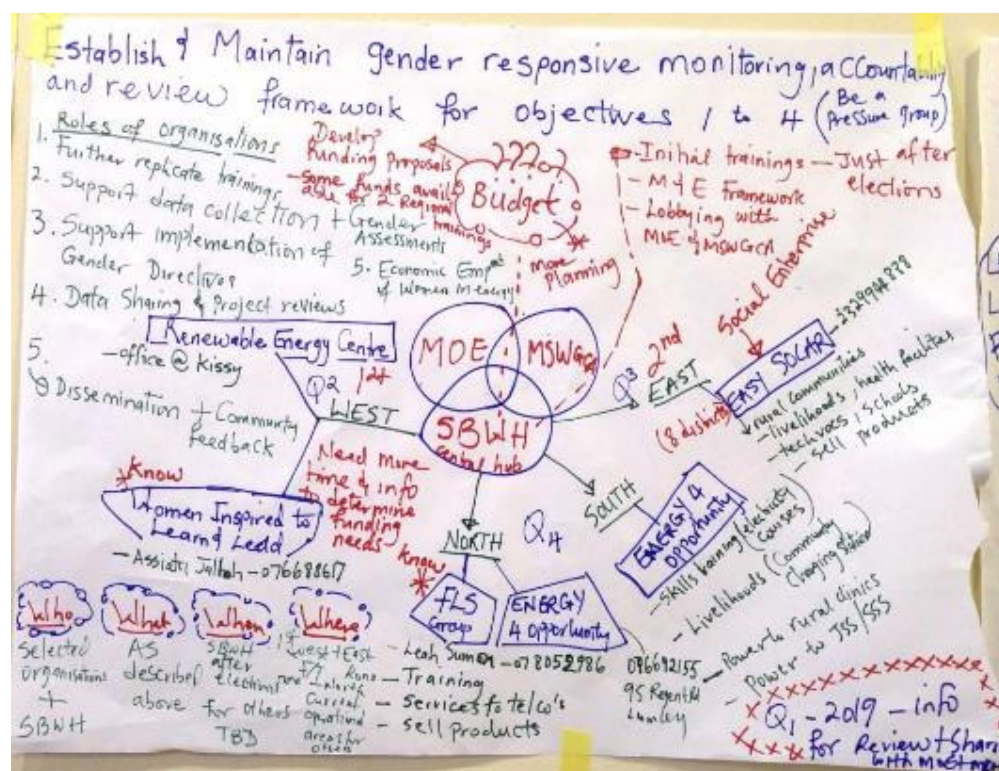 Establish & Maintain gender responsive monitoring, accountability
and review framework for objectives 1 to 4 (Be a
pressure group)
1. Roles of organisations
Further replicate trainings
2. Support data collection + Gender
Assessments
3. Support implementation of
Gender Directives
4. Data Sharing & Project reviews
5. Economic Emp
of Women in energy
5.
Dissemination + Community
feedback
Develop
Funding Proposals
- Some funds avail
able for 2 Regional
trainings
????
Budget
more
Planning
- Initial trainings - Just after
elections
- M & E Framework
- Lobbying with
MOE & MSWGCA
Renewable Energy Centre
- office @ Kissy
Q2 1st
WEST
MOE
MSWGCA
SBWH
central hub
Q3 2nd
EAST
(8 districts)
Social Enterprise
EASY SOLAR
rural communities
- livelihoods, health facilities
- techvocs, schools
- sell products
Know
Women Inspired to
Learn & Lead
Need more
time & info
to determine
funding
needs
NORTH
Q4
SOUTH
ENERGY 4
opportunity
- Skills training (electricity
courses)
- Livelihoods (Community
Charging station)
- Power to rural clinics
- Power to JSS/SSS
Know
FLS
Group
ENERGY
4 opportunity
Who
Selected
organisations
+
SBWH
What
AS
described
above
When
SBWH
after
elections
for others
TBD
Where
West + East
Current
operational
areas for
others
- Training
- Services to telco's
- Sell products
Q1 - 2019 - info
for Review + Share